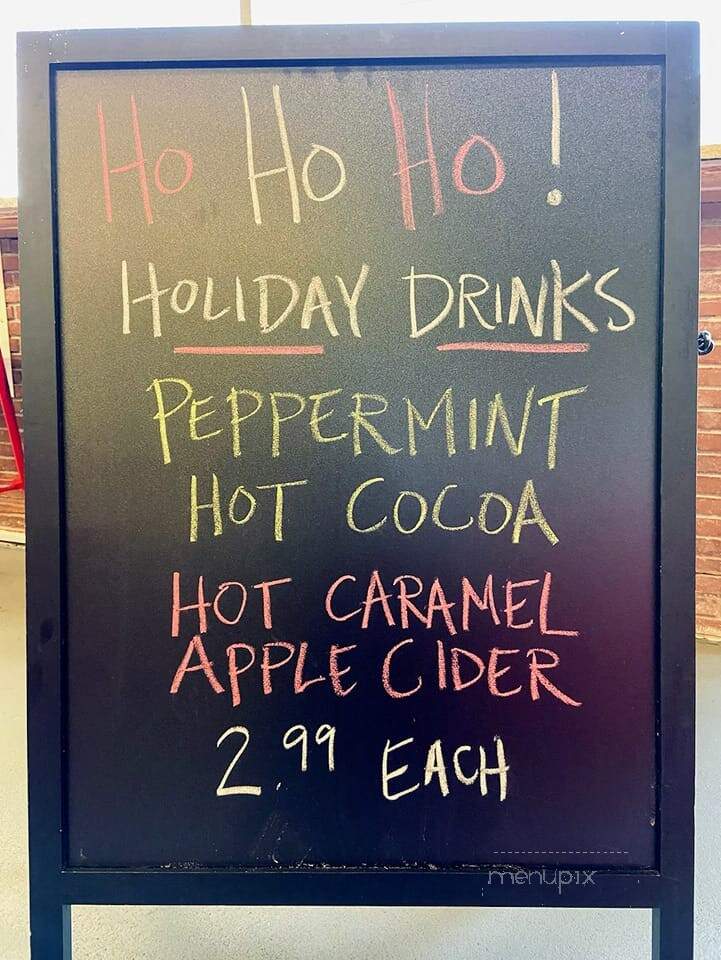 Ho Ho Ho!
HOLIDAY DRINKS
PEPPERMINT
HOT COCOA
HOT CARAMEL
APPLE CIDER
2.99 EACH
menupix